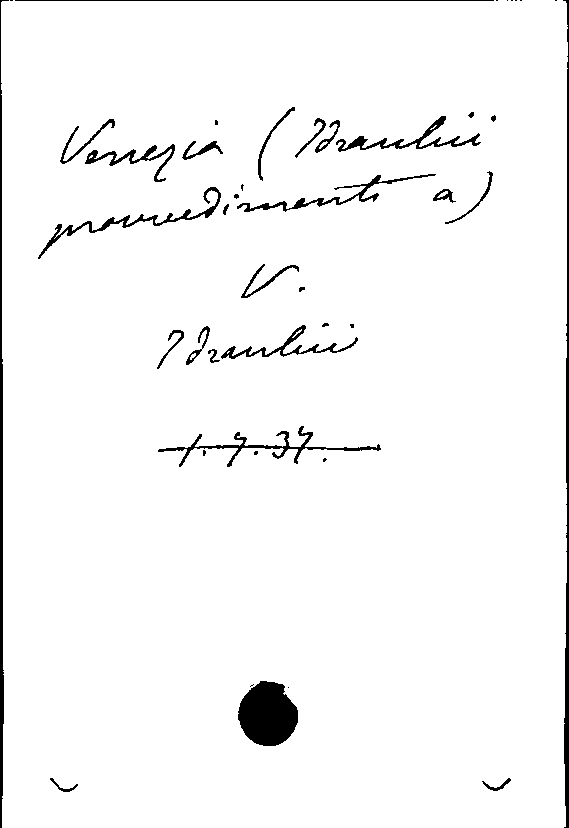 Venezia (Idraulici
provvedimenti a)
V.
Idraulici
1.7.37.